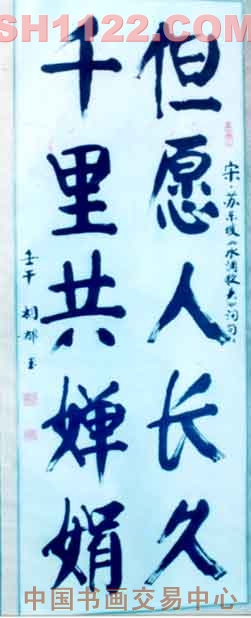 SH1122.COM
但愿人长久
宋·苏东坡《水调歌头》词句
千里共婵娟
壬午
中国书画交易中心